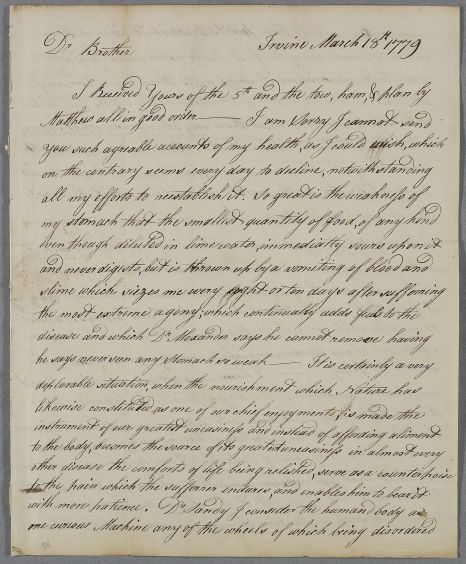 Dr Brother Irvine March 18th 1779
I Received Yours of the 5th and the tow, ham, & plan by
Matthew all in good order — I am Sorry I cannot send
you such agreable accounts of my health, as I could wish, which
on the contrary seems every day to decline, notwithstanding
all my efforts to reestablish it. So great is the weakness of
my stomach that the smallest quantity of food, of any kind
even though diluted in lime water, immediatly sours upon it
and never digests, but is thrown up by a vomiting of blood and
slime which siezes me every eight or ten days after suffering
the most extreme agony, which continually adds fuel to the
disease and which Dr Alexander says he cannot remove having
he says never seen any Stomach so weak — It is certainly a very
deplorable situation, when the nourishment which Nature has
likewise constituted as one of our chief enjoyments, is made the
instrument of our greatest uneasiness and instead of affording aliment
to the body, becomes the source of its greatest uneasiness in almost every
other disease the comforts of life being relished, serve as a counterpoise
to the pain which the sufferer endures, and enables him to bear it
with more patience. Dr Sandy I consider the human body as
one curious Machine any of the wheels of which being disordered